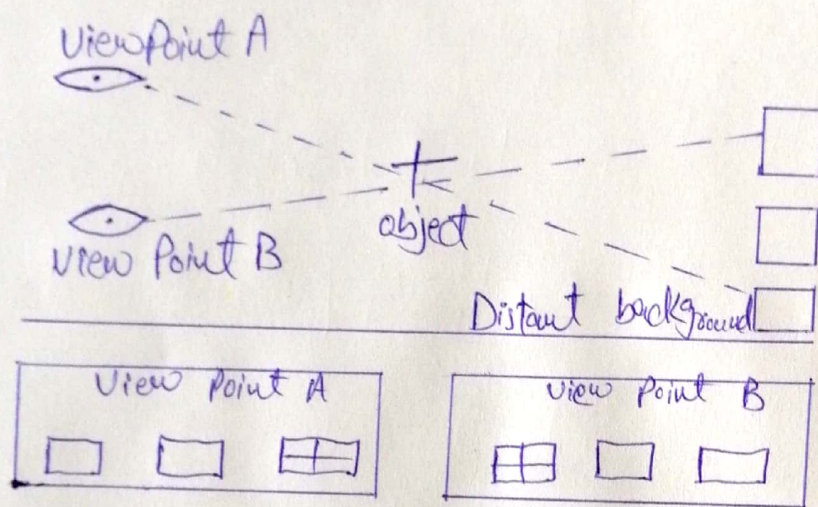 ViewPoint A
object
View Point B
Distant background
View Point A
View Point B